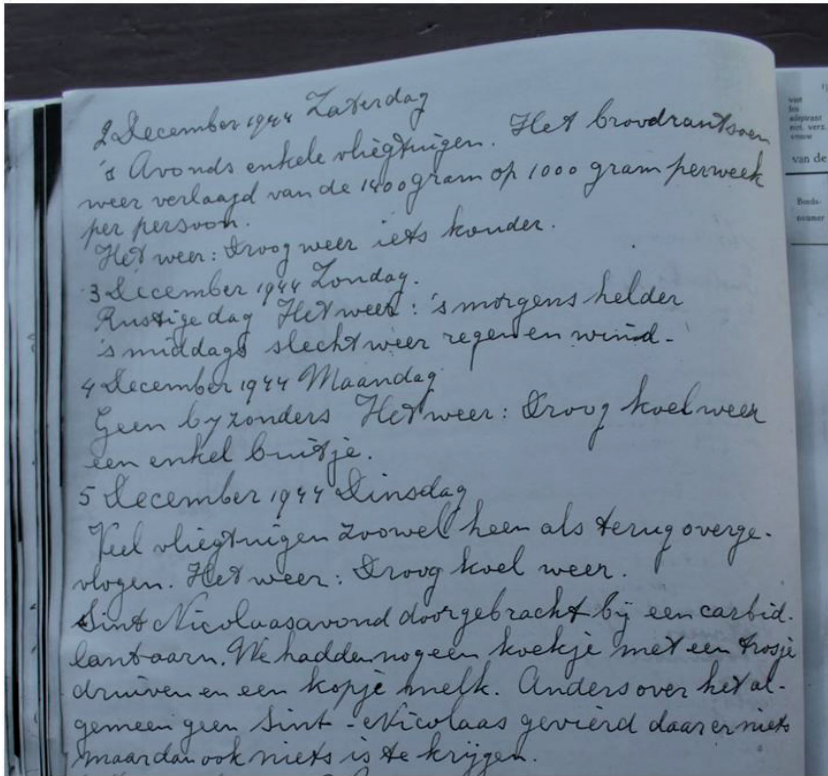 2 December 1944 Zaterdag
's Avonds enkele vliegtuigen. Het broodrantsoen
weer verlaagd van de 1400 gram op 1000 gram perweek
per persoon.
Het weer: Droog weer iets kouder.
3 December 1944 Zondag.
Rustige dag Het weer: 's morgens helder
's middags slecht weer regen en wind.
4 December 1944 Maandag
Geen byzonders Het weer: Droog koel weer
een enkel buitje.
5 December 1944 Dinsdag
Veel vliegtuigen zoowel heen als terug overge-
vlogen. Het weer: Droog koel weer.
Sint Nicolaasavond doorgebracht bij een carbid.
lantaarn. We hadden nog een koekje met een trosje
druiven en een kopje melk. Anders over het al-
gemeen geen Sint-Nicolaas gevierd daar er niets
maar dan ook niets is te krijgen.
vast
los
adspirant
niet. verz.
vrouw
van de
Breeds-
nummer